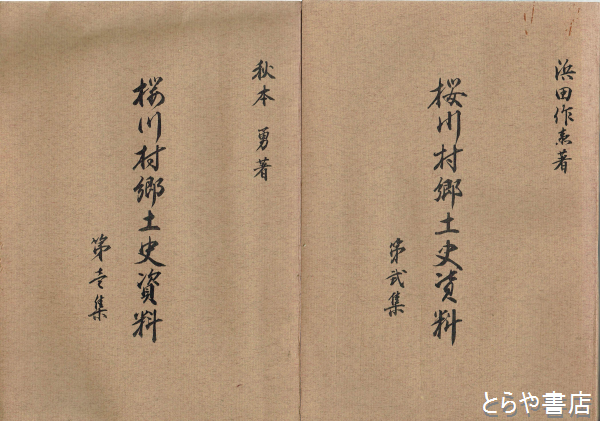 浜田作衛著
桜川村郷土史資料
第弐集
秋本 勇著
桜川村郷土史資料
第壱集
とらや書店